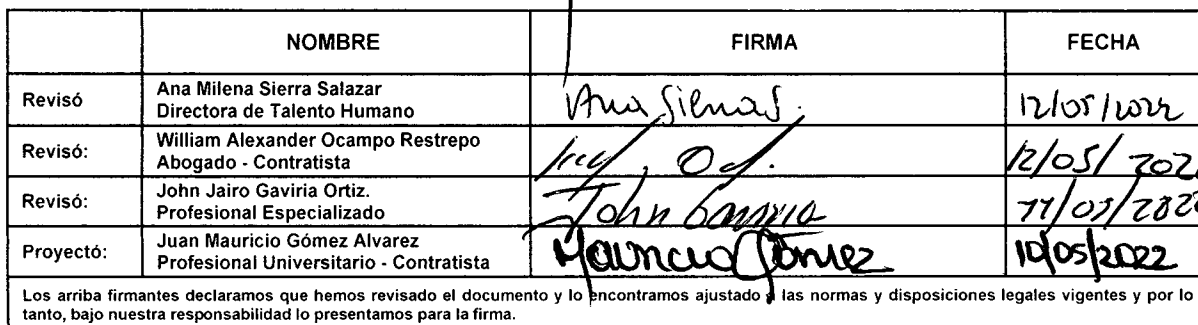 NOMBRE FIRMA FECHA
Revisó Ana Milena Sierra Salazar
Directora de Talento Humano Ana Sierra S. 12/05/2022
Revisó: William Alexander Ocampo Restrepo
Abogado - Contratista 12/05/202
Revisó: John Jairo Gaviria Ortiz.
Profesional Especializado John Gaviria 11/05/2022
Proyectó: Juan Mauricio Gómez Alvarez
Profesional Universitario - Contratista Mauricio Gómez 10/05/2022
Los arriba firmantes declaramos que hemos revisado el documento y lo encontramos ajustado a las normas y disposiciones legales vigentes y por lo
tanto, bajo nuestra responsabilidad lo presentamos para la firma.